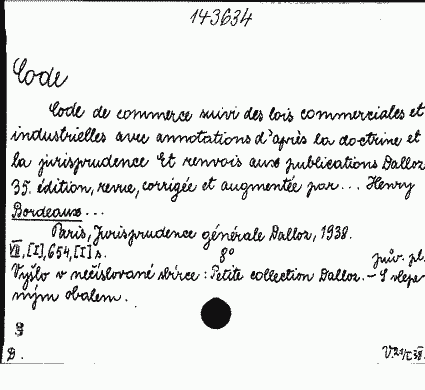 143634
Code
Code de commerce suivi des lois commerciales et
industrielles avec annotations d'après la doctrine et
la jurisprudence Et renvois aux publications Dalloz
35. édition, revue, corrigée et augmentée par... Henry
Bordeaux...
Paris, Jurisprudence générale Dalloz, 1938.
VII, [I], 654, [I] s. 8° pův. pl.
Vyšlo v nečíslované sbírce: Petite collection Dalloz. - S slepe-
ným obalem.
D.